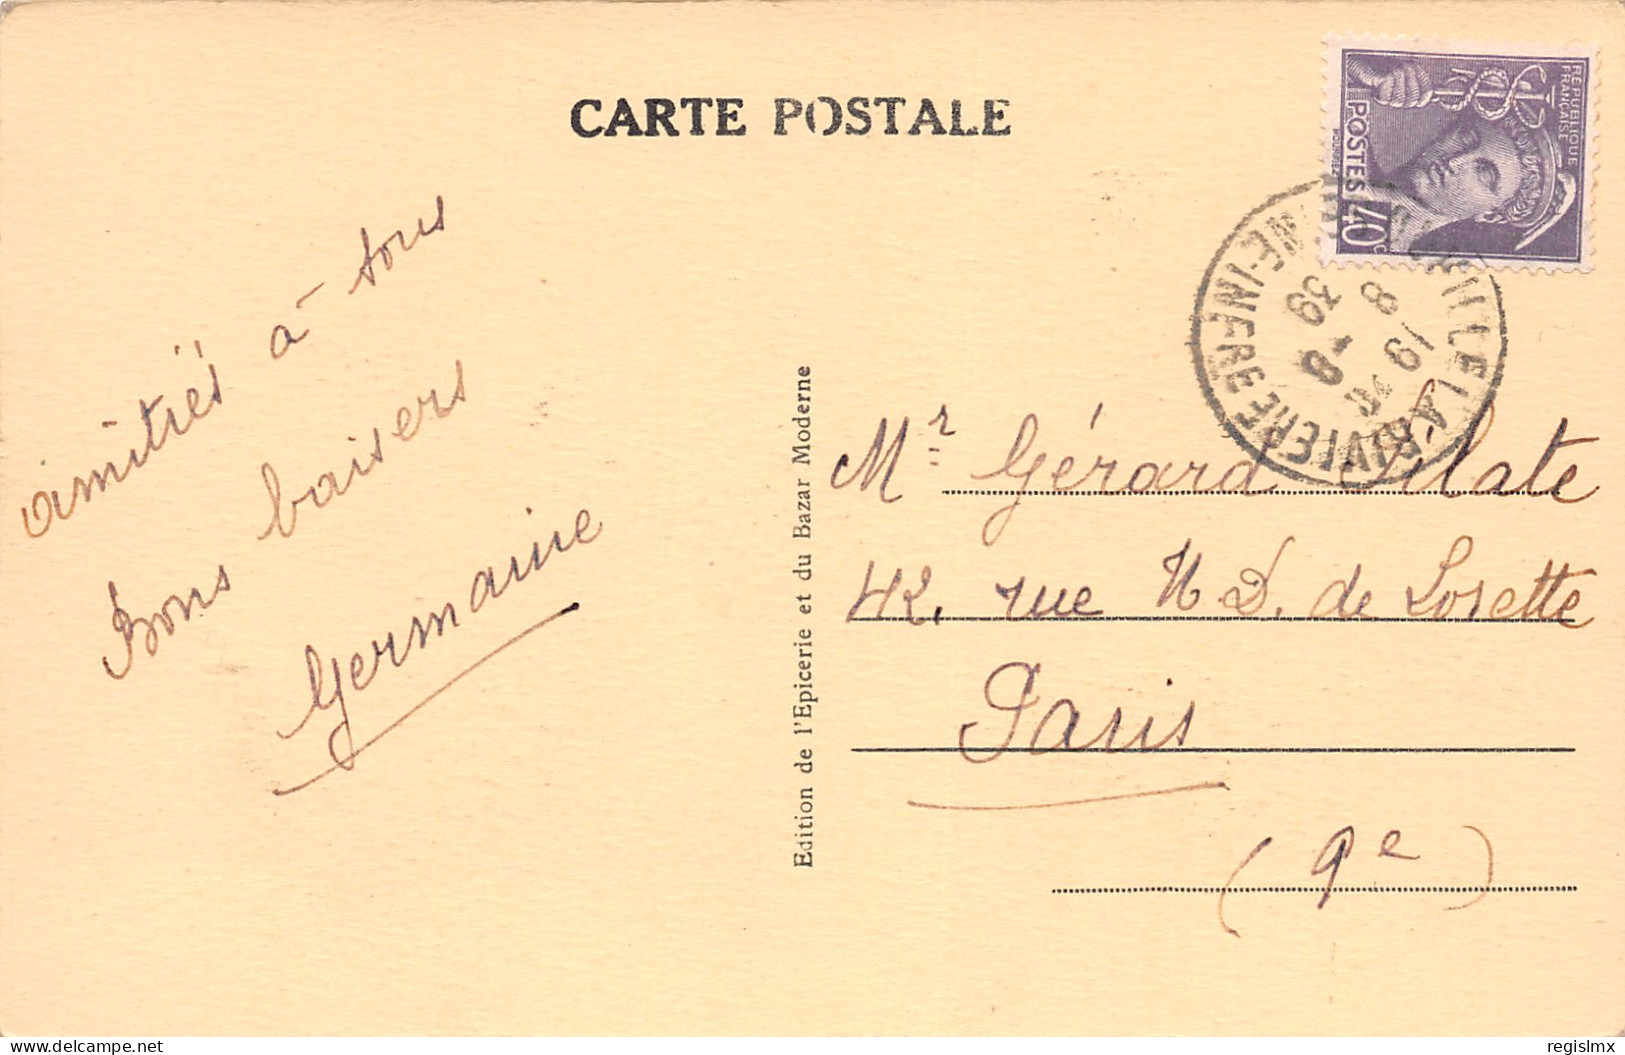 CARTE POSTALE
RÉPUBLIQUE
FRANÇAISE
POSTES
40c
LA RIVIERE
NE-INFRE
19
8
39
amitiés à tous
Bons baisers
Germaine
Edition de l'Epicerie et du Bazar Moderne
Mr Gérard Pilate
42, rue N. D. de Lorette
Paris
(9e)
https://www.delcampe.net
regislmx